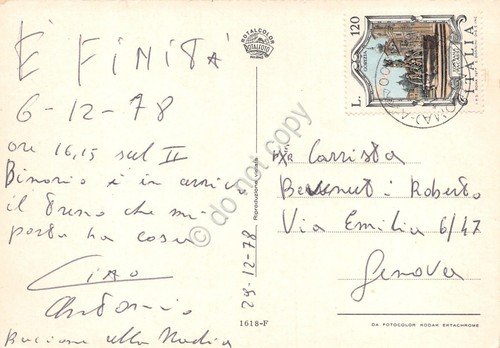 È FINITA
6-12-78
ore 16,15 sul II
Binario è in arrivo
il treno che mi
porta ha casa
CIAO
Antonio
Bacione alla Nadia
ROTALCOLOR
ROTALFOTO
MILANO
Riproduzione vietata
29-12-78
1618-F
L. 120
ITALIA
Ex Carrista
Benvenuti Roberto
Via Emilia 6/47
Genova
DA FOTOCOLOR KODAK EKTACHROME
do not copy